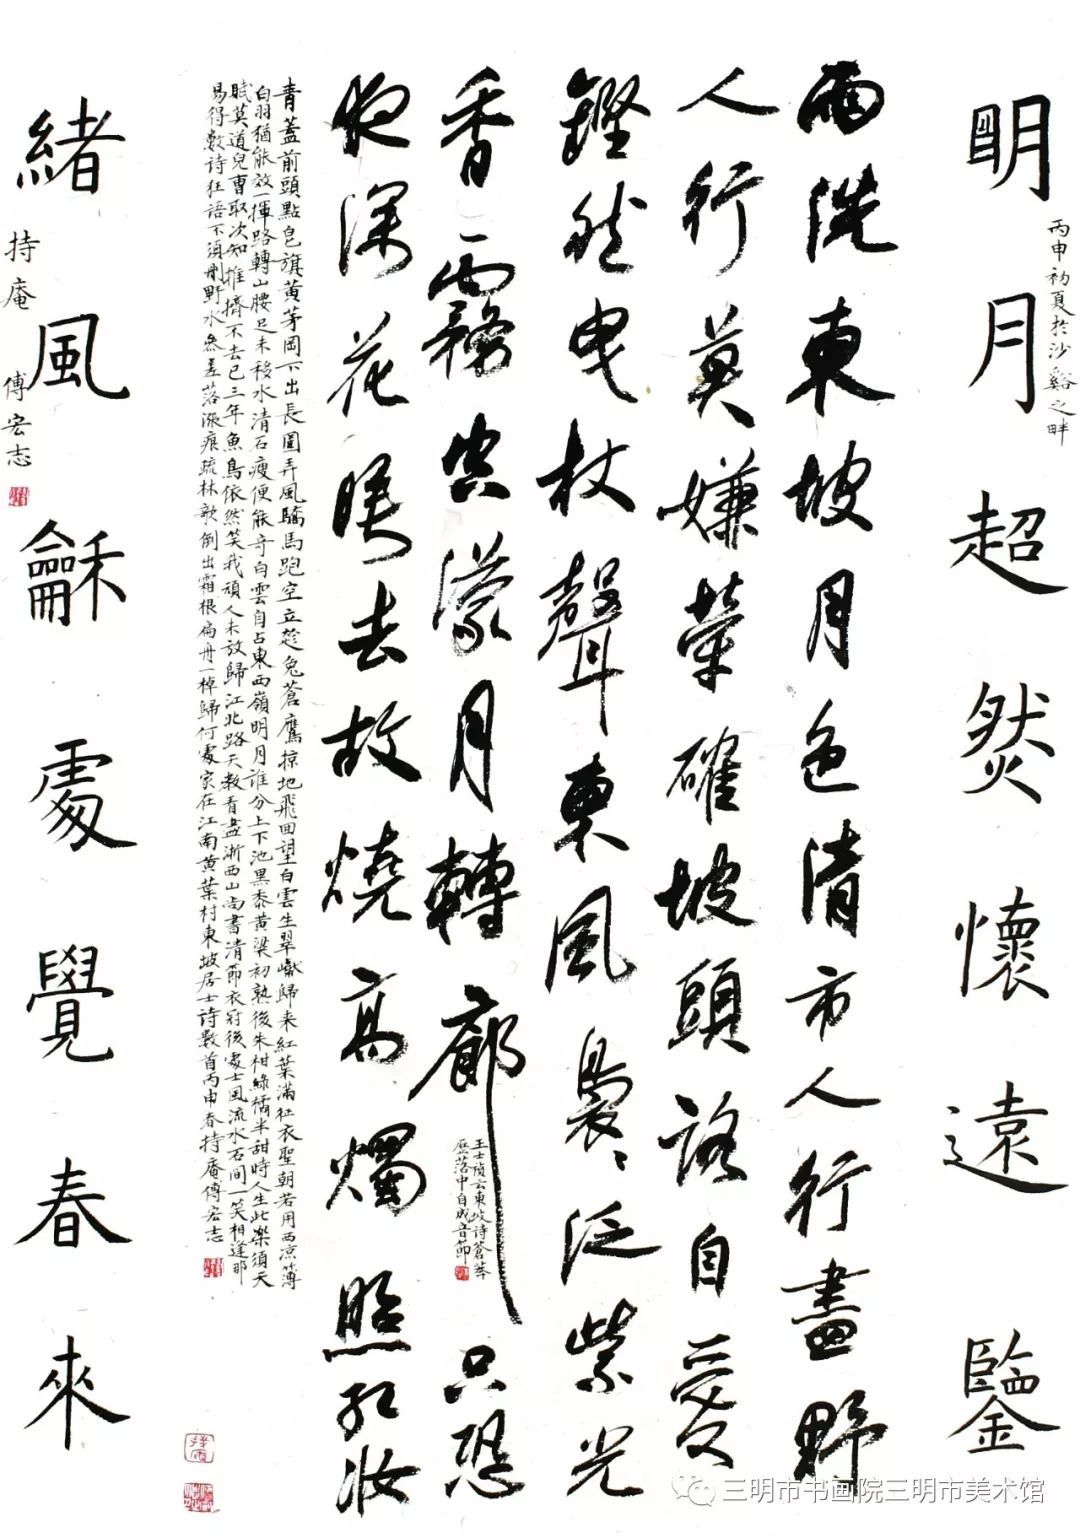 朙月超然懷遠鑒
丙申初夏於沙谿之畔
雨洗東坡月色清市人行盡野
人行莫嫌犖確坡頭路自愛
鏗然曳杖聲東風裊〻泛紫光
香霧空濛月轉廊
王士禎云東坡诗蒼莽
歷落中自成音節
只恐
夜深花睡去故燒高燭照紅妝
青蓋前頭點皂旗黃茅岡下出長圍弄風驕馬跑空立趁兔蒼鷹掠地飛回望白雲生翠巘歸来紅葉滿征衣聖朝若用西涼簿
白羽猶能效一揮路轉山腰足未移水清石瘦便能奇白雲自占東西嶺明月誰分上下池黑黍黃粱初熟後朱柑綠橘半甜時人生此樂須天
賦莫道兒曹取次知推擠不去已三年魚鳥依然笑我頑人未放歸江北路天教看盡浙西山尚書清節衣冠後處士風流水石間一笑相逢那
易得數诗狂語不須刪野水參差落漲痕疏林欹倒出霜根扁舟一棹歸何處家在江南黃葉村東坡居士诗數首丙申春持庵傅宏志
緒風龢處覺春來
持庵 傅宏志
三明市书画院三明市美术馆